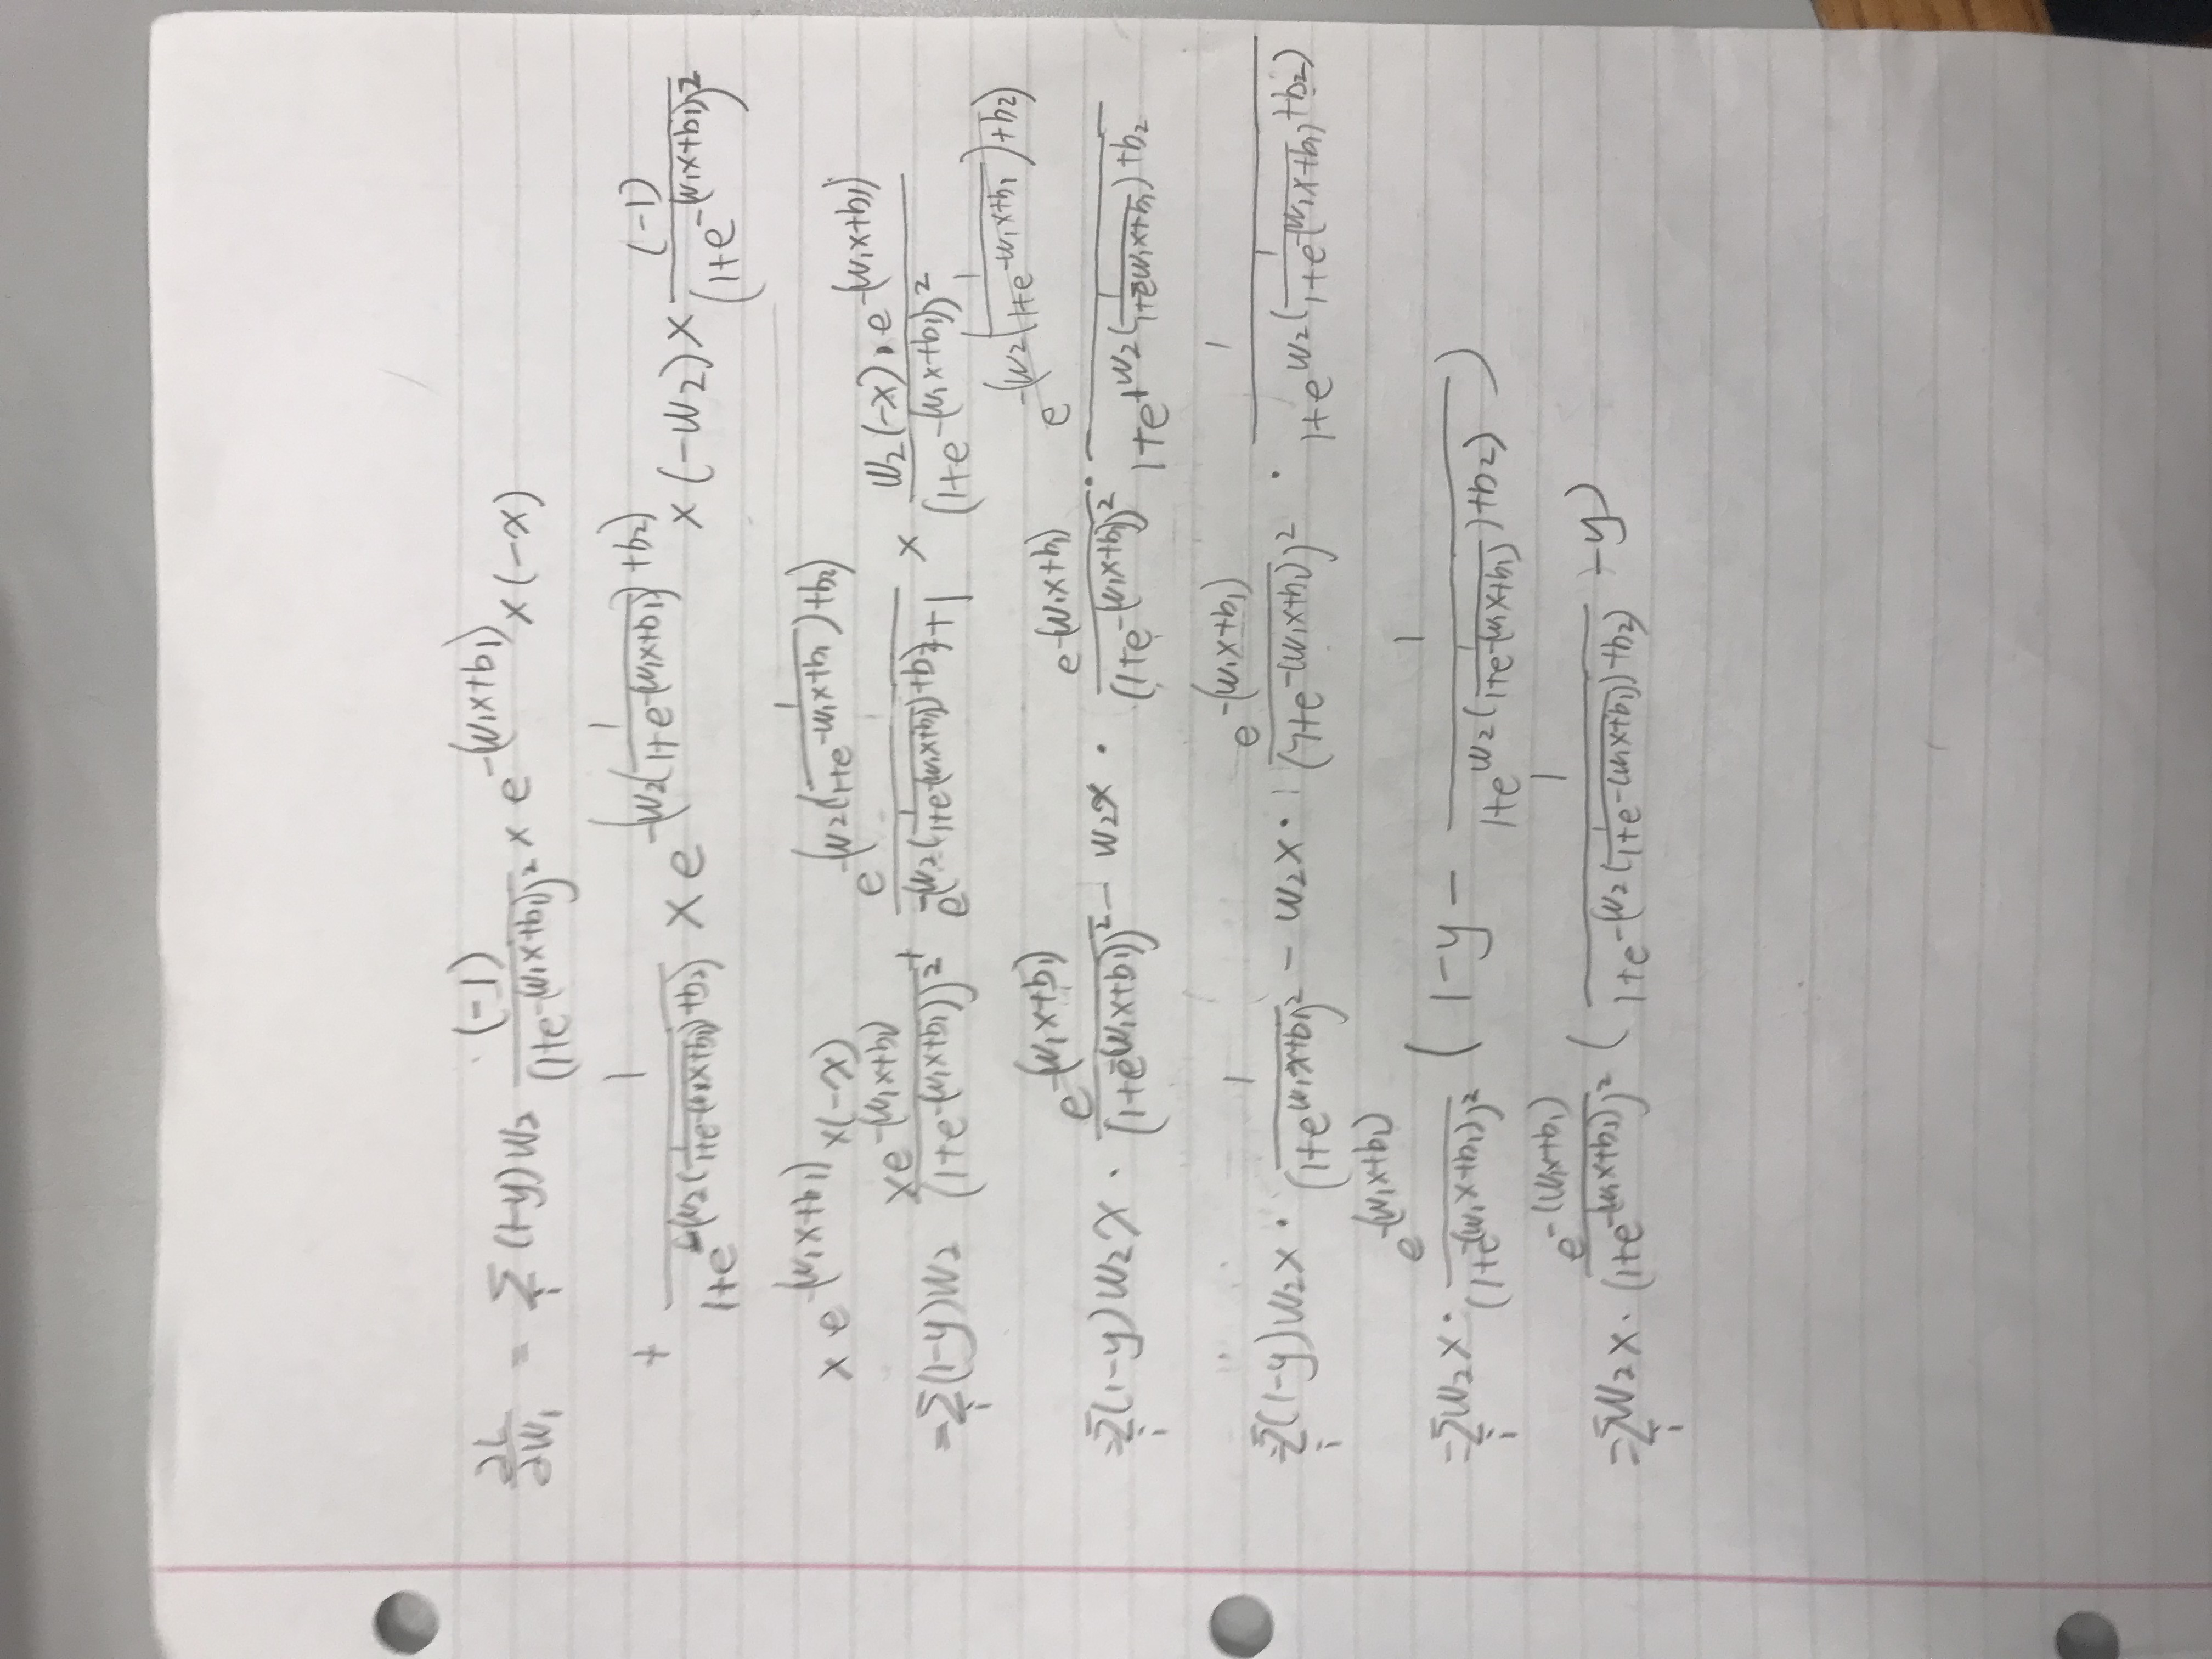 ∂L/∂w₁ = Σᵢ (1-y) w₂ (-1)/(1+e^{-(w₁x+b₁)})² × e^{-(w₁x+b₁)} × (-x)
+ 1/(1+e^{-(w₂(1/(1+e^{-(w₁x+b₁)}))+b₂)}) × e^{-(w₂(1/(1+e^{-(w₁x+b₁)}))+b₂)} × (-w₂) × (-1)/(1+e^{-(w₁x+b₁)})²
× e^{-(w₁x+b₁)} × (-x)
= Σᵢ (1-y) w₂ xe^{-(w₁x+b₁)}/(1+e^{-(w₁x+b₁)})² + e^{-(w₂(1/(1+e^{-w₁x+b₁}))+b₂)}/(e^{-(w₂(1/(1+e^{-(w₁x+b₁)}))+b₂)}+1) × w₂(-x)·e^{-(w₁x+b₁)}/(1+e^{-(w₁x+b₁)})²
= Σᵢ (1-y) w₂x · e^{-(w₁x+b₁)}/(1+e^{-(w₁x+b₁)})² - w₂x · e^{-(w₁x+b₁)}/(1+e^{-(w₁x+b₁)})² · e^{-(w₂(1/(1+e^{-w₁x+b₁}))+b₂)}/(1+e^{+w₂(1/(1+e^{-w₁x+b₁}))+b₂})
= Σᵢ (1-y) w₂x · 1/(1+e^{w₁x+b₁})² - w₂x · e^{-(w₁x+b₁)}/(1+e^{-(w₁x+b₁)})² · 1/(1+e^{w₂(1/(1+e^{-(w₁x+b₁)})+b₂)})
= Σᵢ w₂x · e^{-(w₁x+b₁)}/(1+e^{-(w₁x+b₁)})² (1-y - 1/(1+e^{w₂(1/(1+e^{-(w₁x+b₁)}))+b₂)}))
= Σᵢ w₂x · e^{-(w₁x+b₁)}/(1+e^{-(w₁x+b₁)})² (1/(1+e^{-(w₂(1/(1+e^{-(w₁x+b₁)}))+b₂)}) - y)